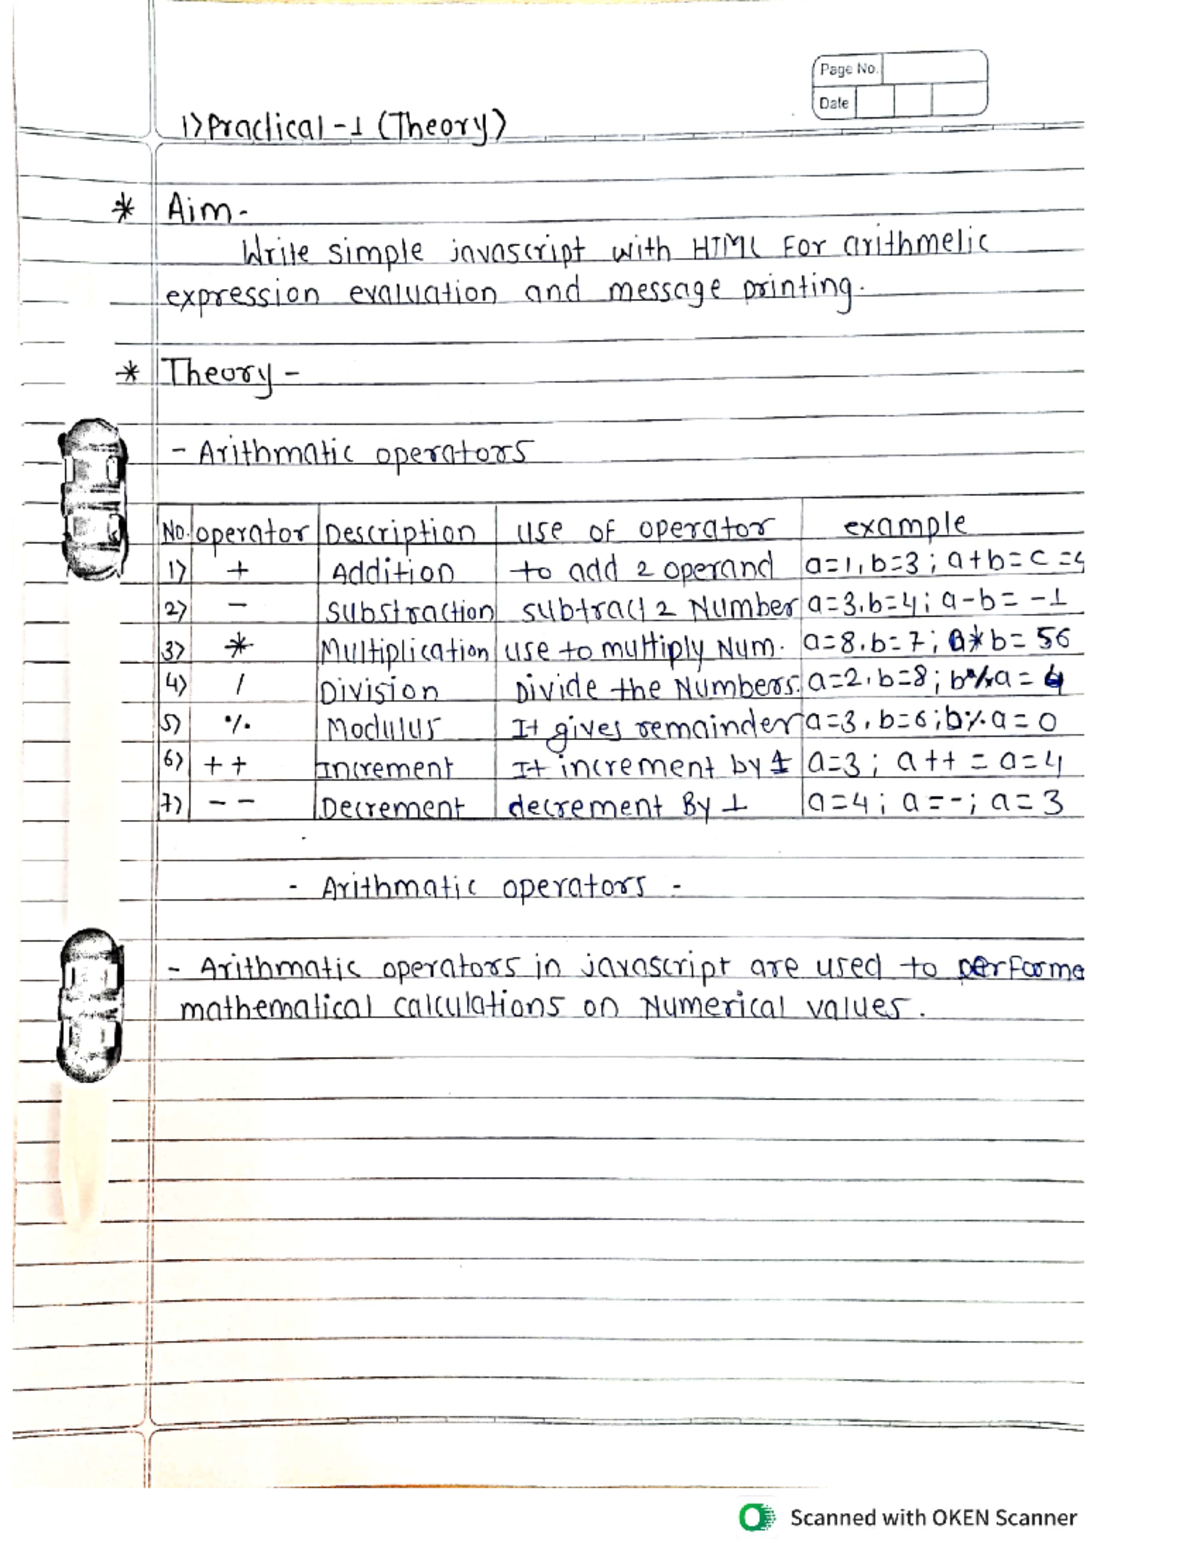 Page No.
Date
1) Practical - 1 (Theory)
* Aim -
Write simple javascript with HTML For arithmetic
expression evaluation and message printing.
* Theory -
- Arithmatic operators
No. operator Description use of operator example
1) + Addition to add 2 operand a=1, b=3 ; a+b = c = 4
2) - Substraction subtract 2 Number a=3, b=4 ; a-b = -1
3) * Multiplication use to multiply Num. a=8, b=7 ; a*b = 56
4) / Division Divide the Numbers. a=2, b=8 ; a = 4
5) % Modulus It gives remainder a=3, b=6 ; b%a = 0
6) ++ Increment It increment by 1 a=3 ; a++ = a=4
7) -- Decrement decrement By 1 a=4 ; a=- ; a=3
- Arithmatic operators -
- Arithmatic operators in javascript are used to performe
mathematical calculations on Numerical values.
Scanned with OKEN Scanner